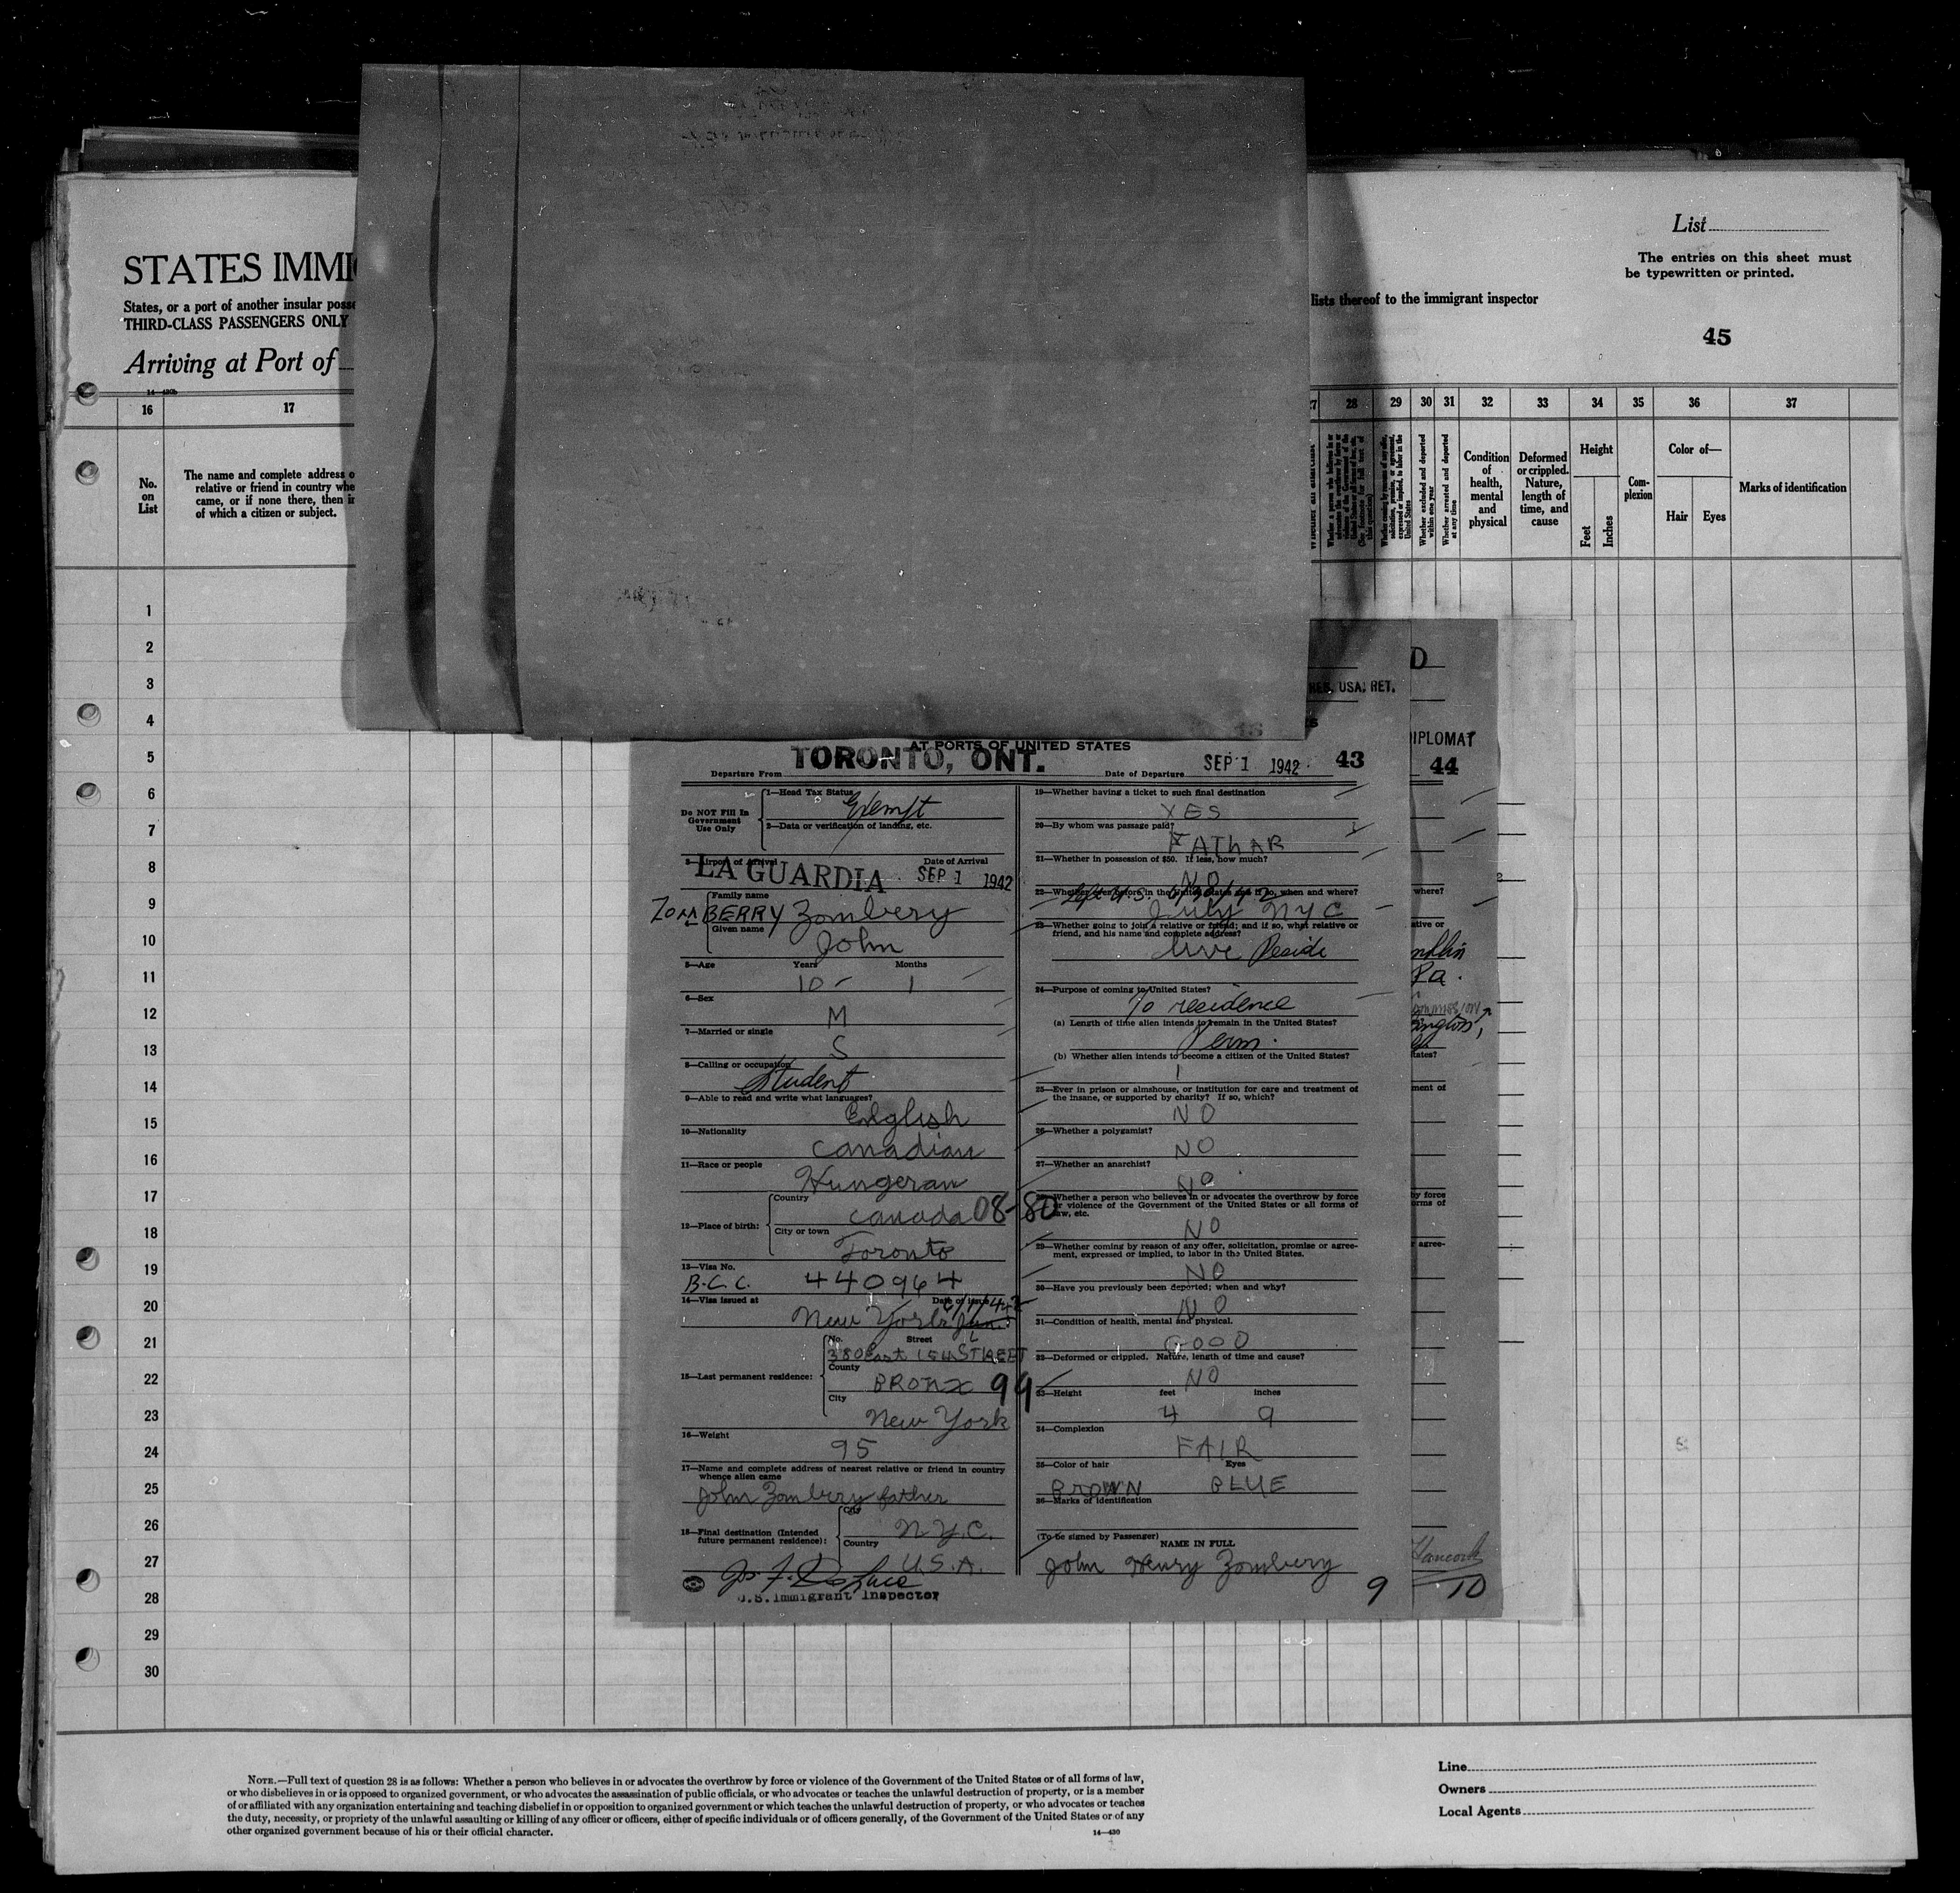 List
The entries on this sheet must
be typewritten or printed.
STATES IMMI
States, or a port of another insular posse
THIRD-CLASS PASSENGERS ONLY
lists thereof to the immigrant inspector
45
Arriving at Port of
14—430b
16 17
No. on List
The name and complete address o
relative or friend in country whe
came, or if none there, then in
of which a citizen or subject.
27 28 29 30 31 32 33 34 35 36 37
Whether excluded and deported within one year
Whether arrested and deported at any time
Condition of health, mental and physical
Deformed or crippled. Nature, length of time, and cause
Height
Feet Inches
Com-plexion
Color of—
Hair Eyes
Marks of identification
1
2
3
4
5
6
7
8
9
10
11
12
13
14
15
16
17
18
19
20
21
22
23
24
25
26
27
28
29
30
USA. RET.
D
DIPLOMAT
44
AT PORTS OF UNITED STATES
Departure From TORONTO, ONT. Date of Departure SEP 1 1942 43
Do NOT Fill In
Government
Use Only
1—Head Tax Status Exempt
2—Data or verification of landing, etc.
3—Airport of Arrival Date of Arrival
LA GUARDIA SEP 1 1942
Family name
ZOMBERRY Zombery
4— Given name
John
5—Age Years Months
10 1
6—Sex
M
7—Married or single
S
8—Calling or occupation
Student
9—Able to read and write what languages?
English
10—Nationality
Canadian
11—Race or people
Hungeran
12—Place of birth: Country
Canada 08-80
City or town
Toronto
13—Visa No.
B.C.C. 440964
14—Visa issued at Date of issue
New York
15—Last permanent residence: No. Street
380 East STREET
County
BRONX 99
City
New York
16—Weight
95
17—Name and complete address of nearest relative or friend in country
whence alien came
John Zombery father
18—Final destination (Intended
future permanent residence): City
N.Y.C.
Country
U.S.A.
U.S. Immigrant Inspector
19—Whether having a ticket to such final destination
YES
20—By whom was passage paid?
FATHAR
21—Whether in possession of $50. If less, how much?
NO
22—Whether ever before in the United States and if so, when and where?
July NYC
23—Whether going to join a relative or friend; and if so, what relative or
friend, and his name and complete address?
live Reside
24—Purpose of coming to United States?
To residence
(a) Length of time alien intends to remain in the United States?
Perm.
(b) Whether alien intends to become a citizen of the United States?
25—Ever in prison or almshouse, or institution for care and treatment of
the insane, or supported by charity? If so, which?
NO
26—Whether a polygamist?
NO
27—Whether an anarchist?
NO
28—Whether a person who believes in or advocates the overthrow by force
or violence of the Government of the United States or all forms of
law, etc.
NO
29—Whether coming by reason of any offer, solicitation, promise or agree-
ment, expressed or implied, to labor in the United States.
NO
30—Have you previously been deported; when and why?
NO
31—Condition of health, mental and physical.
GOOD
32—Deformed or crippled. Nature, length of time and cause?
NO
33—Height feet inches
4 9
34—Complexion
FAIR
35—Color of hair Eyes
BROWN BLUE
36—Marks of identification
(To be signed by Passenger)
NAME IN FULL
John Henry Zombery
9
where?
ative or
Pa.
tates?
ment of
by force
orms of
r agree-
10
NOTE.—Full text of question 28 is as follows: Whether a person who believes in or advocates the overthrow by force or violence of the Government of the United States or of all forms of law,
or who disbelieves in or is opposed to organized government, or who advocates the assassination of public officials, or who advocates or teaches the unlawful destruction of property, or is a member
of or affiliated with any organization entertaining and teaching disbelief in or opposition to organized government or which teaches the unlawful destruction of property, or who advocates or teaches
the duty, necessity, or propriety of the unlawful assaulting or killing of any officer or officers, either of specific individuals or of officers generally, of the Government of the United States or of any
other organized government because of his or their official character.
14—430
Line
Owners
Local Agents